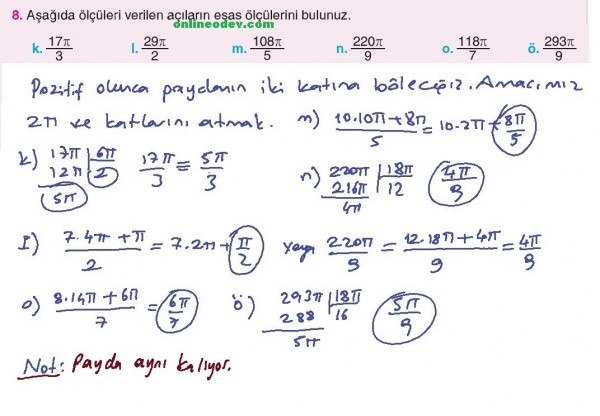 8. Aşağıda ölçüleri verilen açıların esas ölçülerini bulunuz.
onlineodev.com
k. 17π/3 l. 29π/2 m. 108π/5 n. 220π/9 o. 118π/7 ö. 293π/9
Pozitif olunca paydanın iki katına böleceğiz. Amacımız
2π ve katlarını atmak.
m) 10.10π+8π/5 = 10.2π+8π/5
k) 17π | 6π
12π | 2
5π
17π/3 ≡ 5π/3
n) 220π | 18π
216π | 12
4π
4π/9
I) 7.4π+π/2 = 7.2π+π/2
veya 220π/9 = 12.18π+4π/9 = 4π/9
o) 8.14π+6π/7 = 6π/7
ö) 293π | 18π
288 | 16
5π
5π/9
Not: Payda aynı kalıyor.